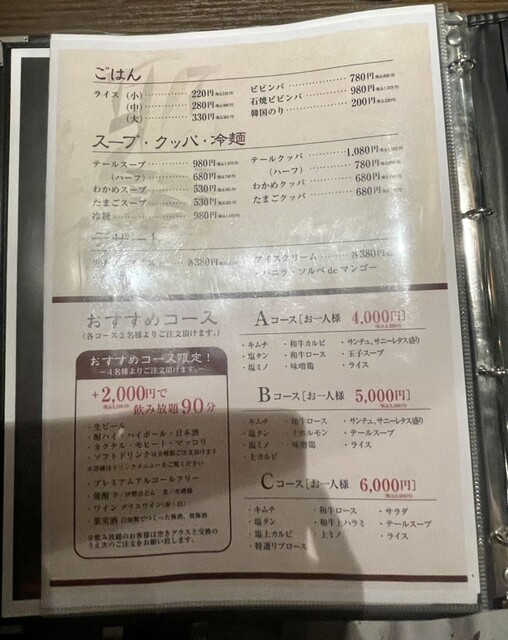 ごはん
ライス（小） 220円
（中） 280円
（大） 330円
ビビンバ 780円
石焼ビビンバ 980円
韓国のり 200円
スープ・クッパ・冷麺
テールスープ 980円
（ハーフ） 680円
わかめスープ 530円
たまごスープ 530円
冷麺 980円
テールクッパ 1,080円
（ハーフ） 780円
わかめクッパ 680円
たまごクッパ 680円
デザート
各380円
アイスクリーム 各380円
バニラ・ソルベ de マンゴー
おすすめコース
（各コース2名様よりご注文頂けます。）
おすすめコース限定！
－4名様よりご注文頂けます。－
+2,000円で
飲み放題90分
・生ビール
・酎ハイ・ハイボール・日本酒
・カクテル・モヒート・マッコリ
・ソフトドリンクは全種類ご注文頂けます
※詳細はドリンクメニューをご覧ください
・プレミアムアルコールフリー
・焼酎
・ワイン グラスワイン（赤/白）
・果実酒
※飲み放題のお客様は空きグラスと交換のうえ次のご注文をお願い致します。
Aコース［お一人様 4,000円］
・キムチ ・和牛カルビ ・サンチュ、サニーレタス盛り
・塩タン ・和牛ロース ・玉子スープ
・塩ミノ ・味噌鶏 ・ライス
Bコース［お一人様 5,000円］
・キムチ ・和牛ロース ・サンチュ、サニーレタス盛り
・塩タン ・上ホルモン ・テールスープ
・塩ミノ ・味噌鶏 ・ライス
・上カルビ
Cコース［お一人様 6,000円］
・キムチ ・和牛ロース ・サラダ
・塩タン ・和牛上ハラミ ・テールスープ
・塩上カルビ ・上ミノ ・ライス
・特選リブロース